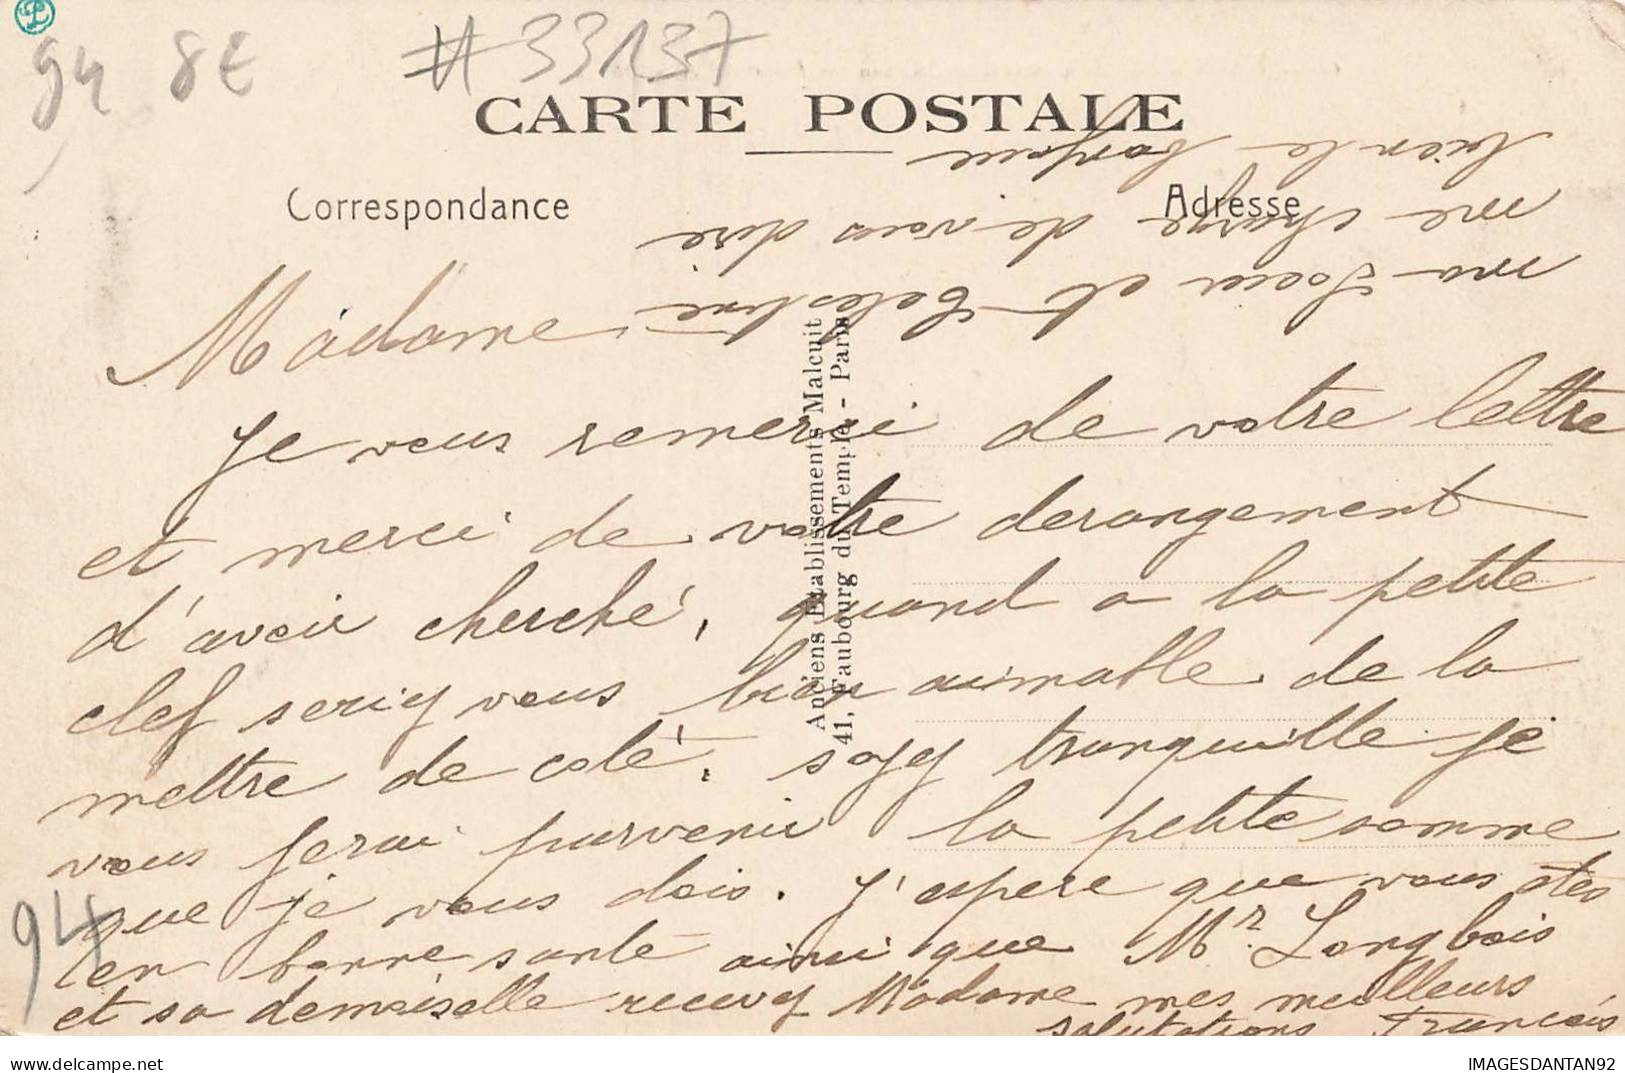 94 8E
#33137
CARTE POSTALE
Correspondance
Adresse
Madame
Je vous remerci de votre lettre
et merci de votre derangement
d'avoir cherché, quand a la petite
clef seriez vous bien aimable de la
mettre de coté, soyez tranquille je
vous ferai parvenir la petite somme
que je vous dois. J'espere que vous êtes
en bonne santé ainsi que Mr. Longbois
et sa demoiselle recevez Madame mes meilleurs
salutations Francois
ma Soeur et Celestine
me charge de vous dire
bien le bonjour
Anciens Etablissements Malcuit
41, Faubourg du Temple - Paris
94
www.delcampe.net
IMAGESDANTAN92